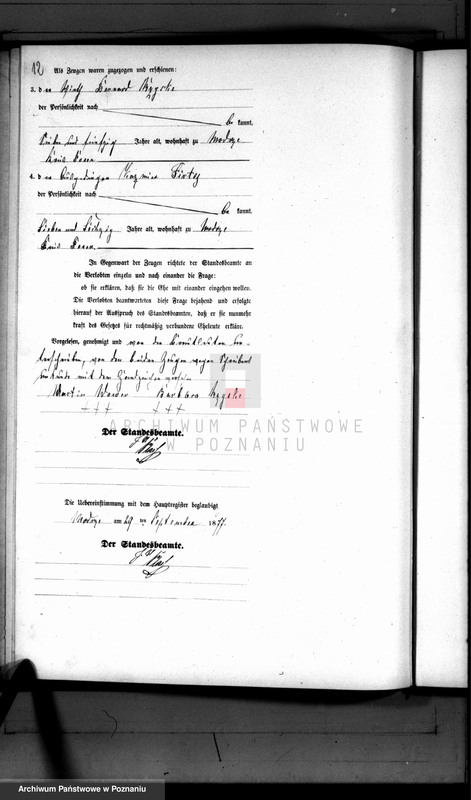 12
Als Zeugen waren zugezogen und erschienen:
3. der Bernard
der Persönlichkeit nach
be kannt,
Sieben und fünfzig Jahre alt, wohnhaft zu Modrze
Kreis Posen
4. der
der Persönlichkeit nach
be kannt,
Sieben und Jahre alt, wohnhaft zu Modrze
Kreis Posen.
In Gegenwart der Zeugen richtete der Standesbeamte an
die Verlobten einzeln und nach einander die Frage:
ob sie erklären, daß sie die Ehe mit einander eingehen wollen.
Die Verlobten beantworteten diese Frage bejahend und erfolgte
hierauf der Ausspruch des Standesbeamten, daß er sie nunmehr
kraft des Gesetzes für rechtmäßig verbundene Eheleute erkläre.
Vorgelesen, genehmigt und von den Brautleuten un-
terschrieben, von den beiden Zeugen wegen Schreibens
unkunde mit dem Handzeichen versehen
Martin Barbara
+++ +++
ARCHIWUM PAŃSTWOWE
W POZNANIU
Der Standesbeamte.
Die Uebereinstimmung mit dem Hauptregister beglaubigt
Modrze am 29 ten September 1877.
Der Standesbeamte.
Archiwum Państwowe w Poznaniu